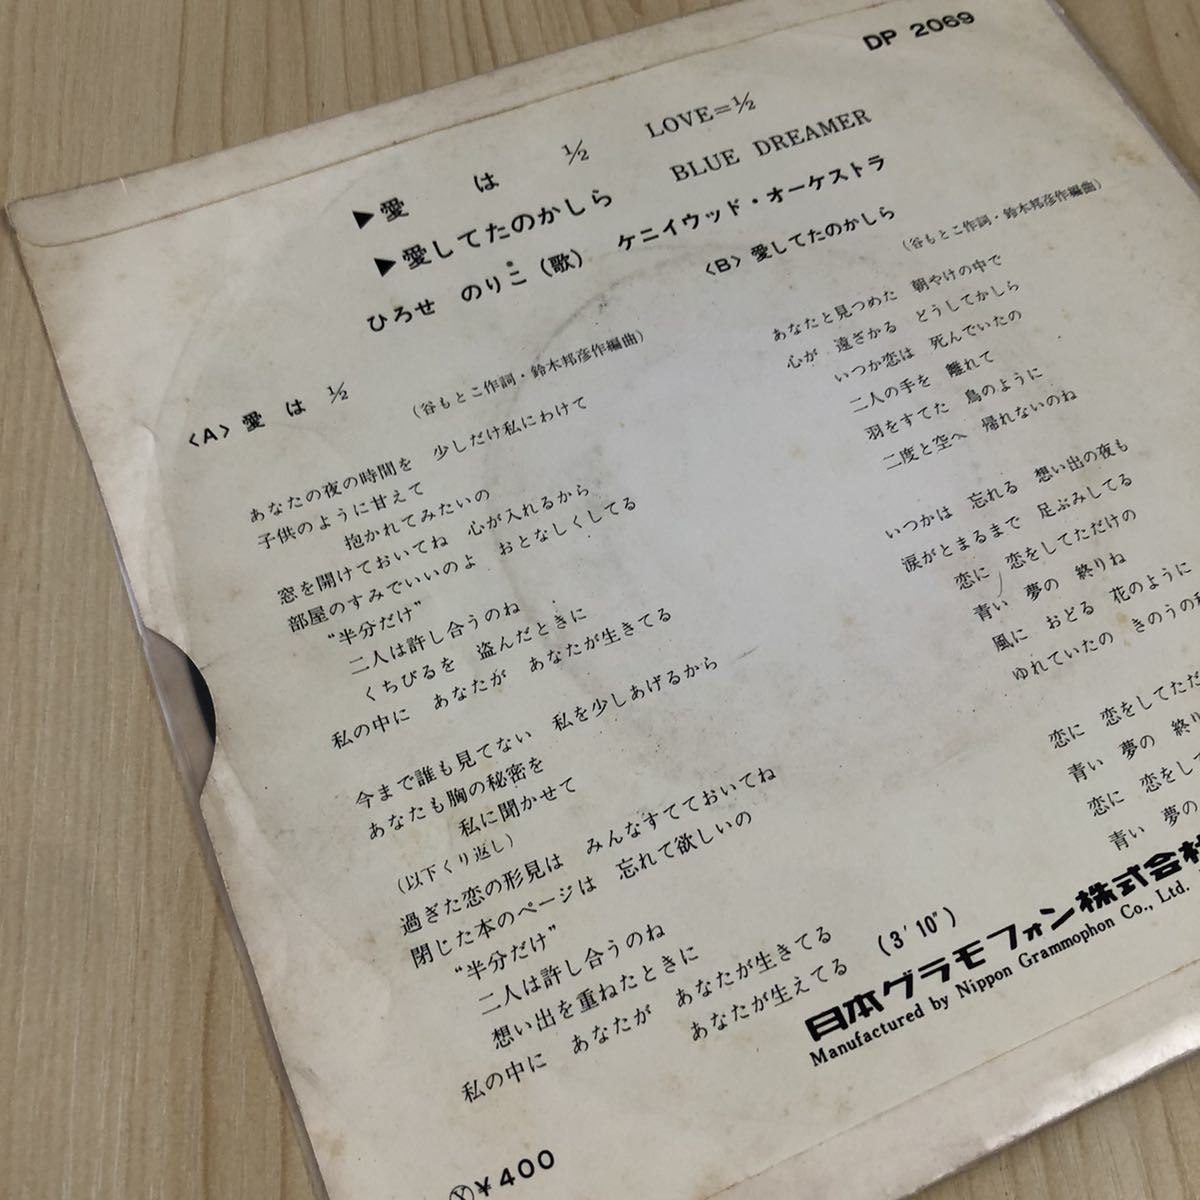 DP 2069
▶愛 は 1/2 LOVE=1/2
▶愛してたのかしら BLUE DREAMER
ひろせ のりこ(歌) ケニイウッド・オーケストラ
〈A〉愛 は 1/2
(谷もとこ作詞・鈴木邦彦作編曲)
あなたの夜の時間を 少しだけ私にわけて
子供のように甘えて
抱かれてみたいの
窓を開けておいてね 心が入れるから
部屋のすみでいいのよ おとなしくしてる
“半分だけ”
二人は許し合うのね
くちびるを 盗んだときに
私の中に あなたが あなたが生きてる
今まで誰も見てない 私を少しあげるから
あなたも胸の秘密を
私に聞かせて
(以下くり返し)
過ぎた恋の形見は みんなすてておいてね
閉じた本のページは 忘れて欲しいの
“半分だけ”
二人は許し合うのね
想い出を重ねたときに
私の中に あなたが あなたが生きてる
あなたが生えてる (3′10″)
〈B〉愛してたのかしら
(谷もとこ作詞・鈴木邦彦作編曲)
あなたと見つめた 朝やけの中で
心が 遠ざかる どうしてかしら
いつか恋は 死んでいたの
二人の手を 離れて
羽をすてた 鳥のように
二度と空へ 帰れないのね
いつかは 忘れる 想い出の夜も
涙がとまるまで 足ぶみしてる
恋に 恋をしてただけの
青い 夢の 終りね
風に おどる 花のように
ゆれていたの きのうの
恋に 恋をしてただ
青い 夢の 終り
恋に 恋をして
青い 夢の
日本グラモフォン株式会社
Manufactured by Nippon Grammophon Co., Ltd.
Ⓨ¥400